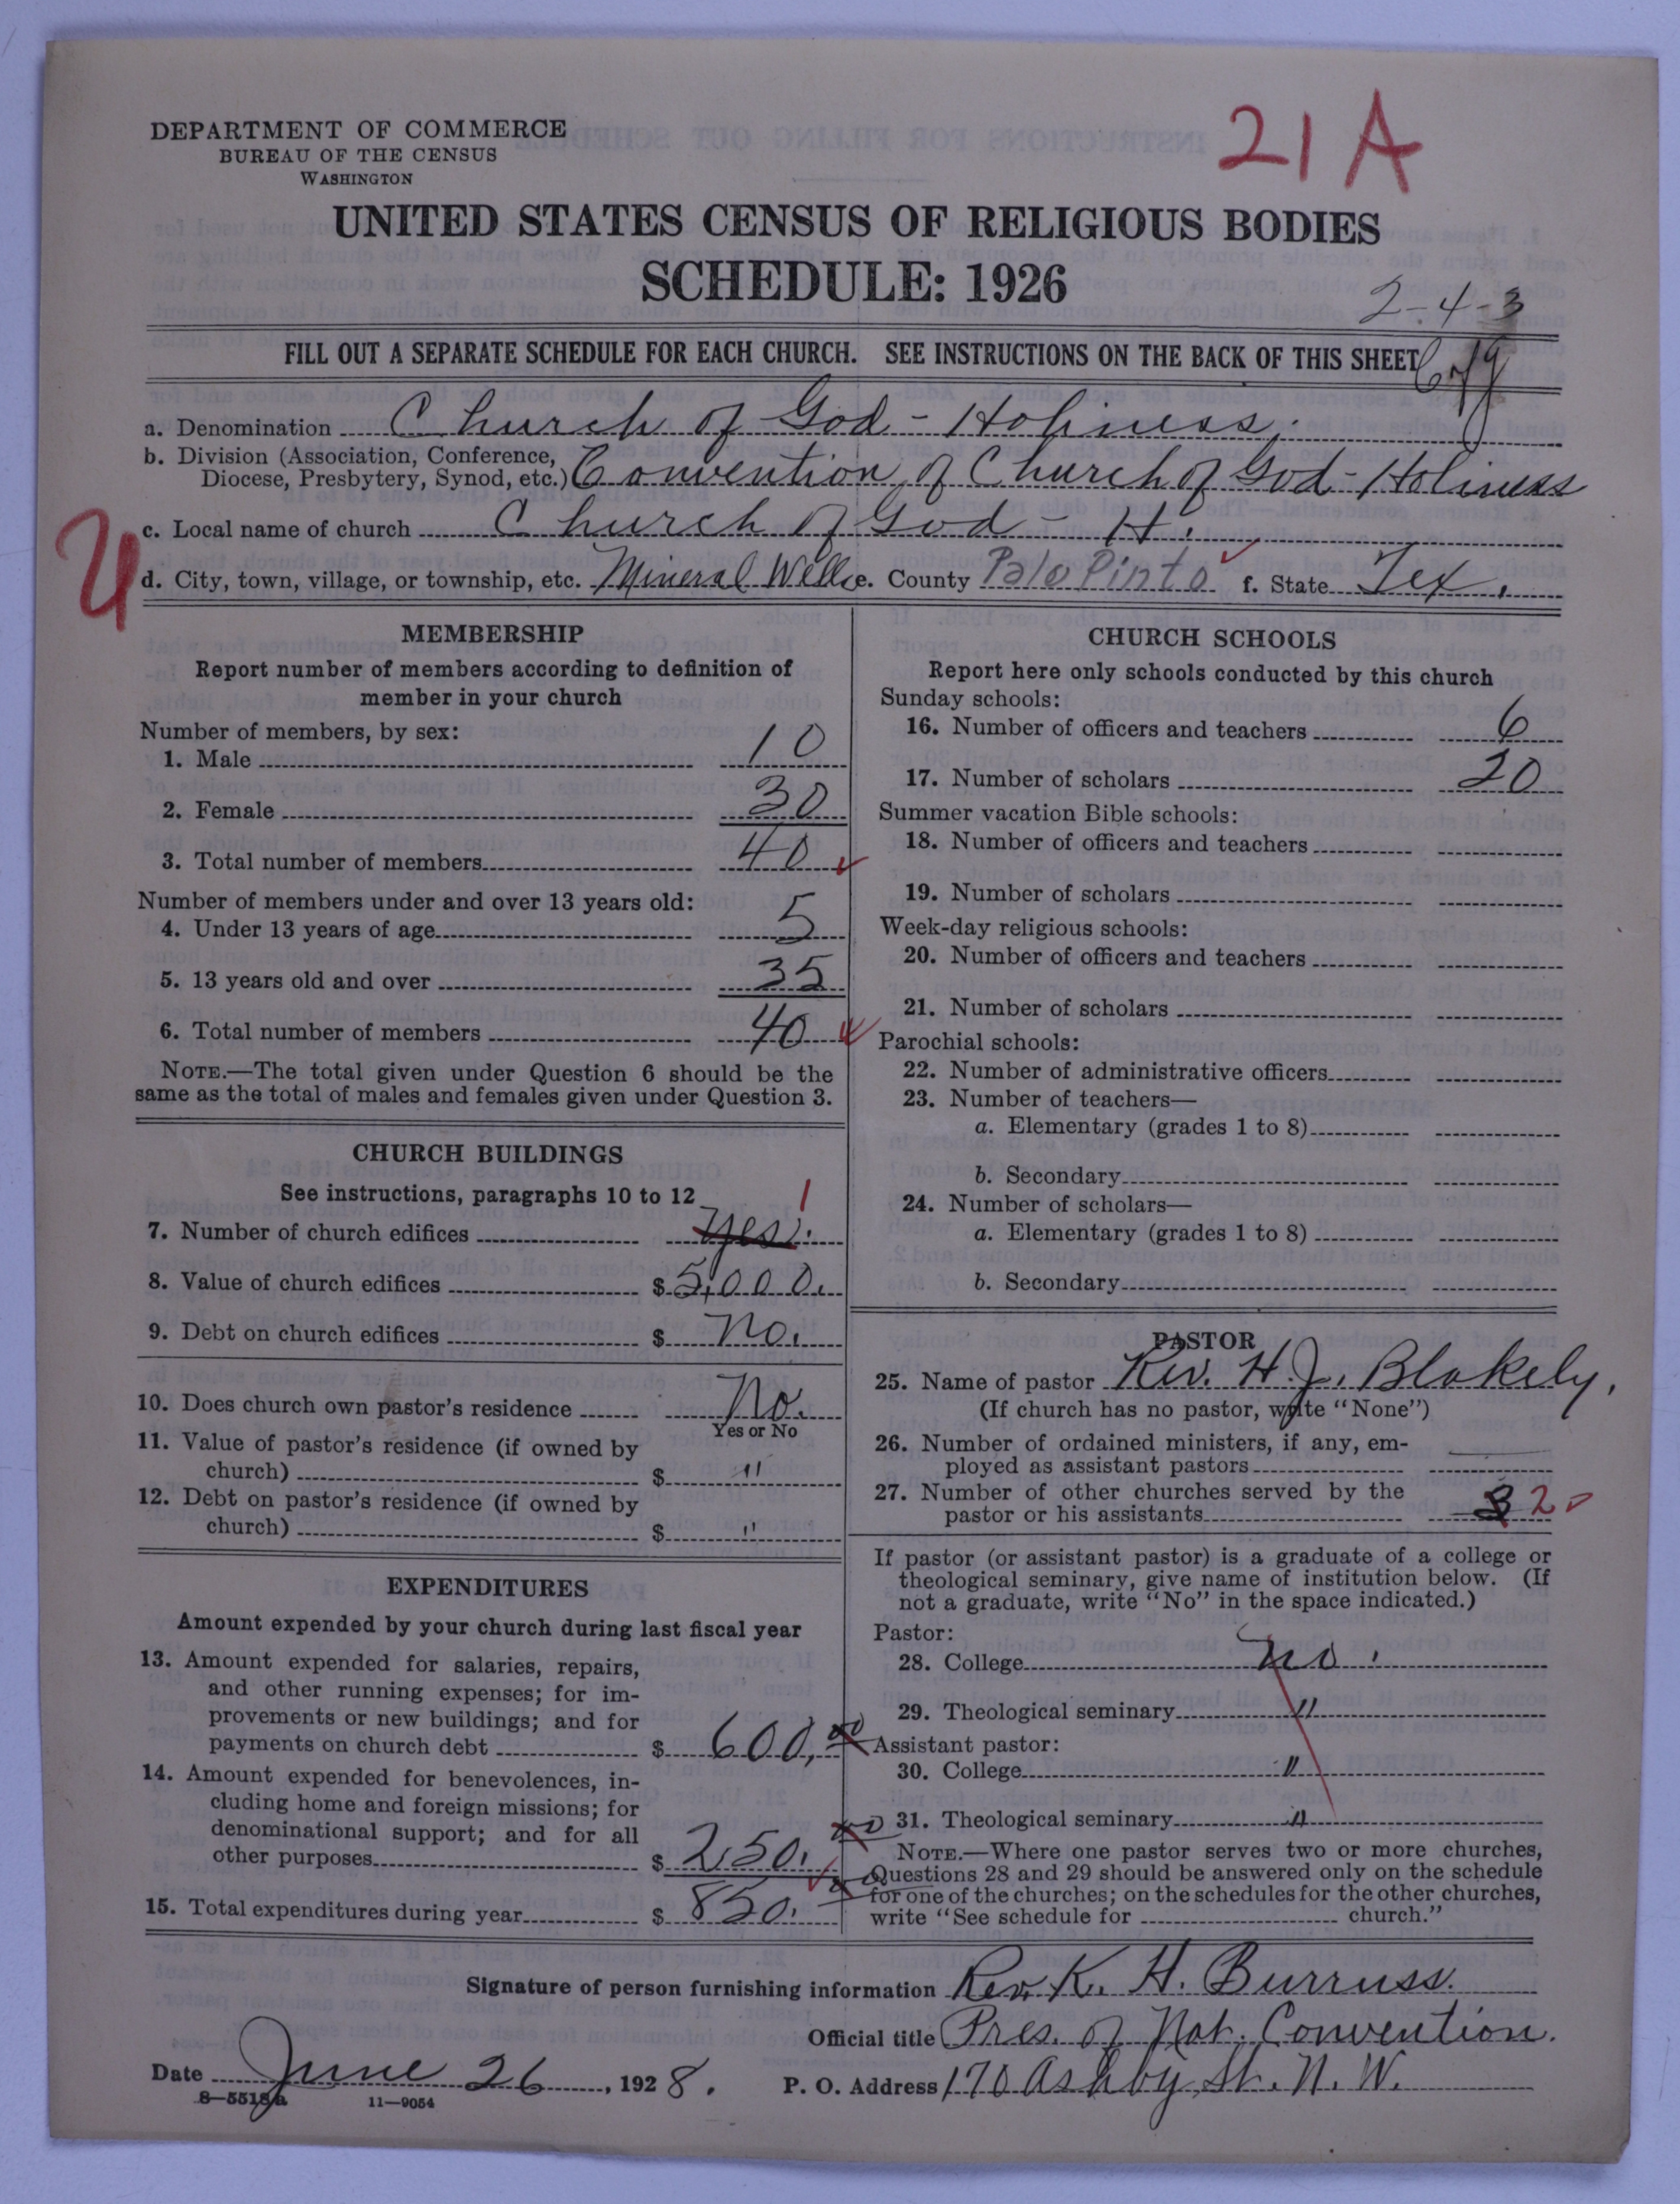 21A
DEPARTMENT OF COMMERCE
BUREAU OF THE CENSUS
WASHINGTON
UNITED STATES CENSUS OF RELIGIOUS BODIES
SCHEDULE: 1926
2-4-3
FILL OUT A SEPARATE SCHEDULE FOR EACH CHURCH. SEE INSTRUCTIONS ON THE BACK OF THIS SHEET
a. Denomination Church of God - Holiness.
b. Division (Association, Conference,
Diocese, Presbytery, Synod, etc.) Convention of Church of God - Holiness
c. Local name of church Church of God - H.
U
d. City, town, village, or township, etc. Mineral Wells e. County Palo Pinto f. State Tex.
MEMBERSHIP
Report number of members according to definition of
member in your church
Number of members, by sex:
1. Male 10
2. Female 30
3. Total number of members 40
Number of members under and over 13 years old:
4. Under 13 years of age 5
5. 13 years old and over 35
6. Total number of members 40
NOTE.—The total given under Question 6 should be the
same as the total of males and females given under Question 3.
CHURCH BUILDINGS
See instructions, paragraphs 10 to 12
7. Number of church edifices Yes. 1
8. Value of church edifices $ 5,000.
9. Debt on church edifices $ No.
10. Does church own pastor's residence No.
Yes or No
11. Value of pastor's residence (if owned by
church) $ "
12. Debt on pastor's residence (if owned by
church) $ "
EXPENDITURES
Amount expended by your church during last fiscal year
13. Amount expended for salaries, repairs,
and other running expenses; for im-
provements or new buildings; and for
payments on church debt $ 600.00
14. Amount expended for benevolences, in-
cluding home and foreign missions; for
denominational support; and for all
other purposes $ 250.00
15. Total expenditures during year $ 850.00
CHURCH SCHOOLS
Report here only schools conducted by this church
Sunday schools:
16. Number of officers and teachers 6
17. Number of scholars 20
Summer vacation Bible schools:
18. Number of officers and teachers
19. Number of scholars
Week-day religious schools:
20. Number of officers and teachers
21. Number of scholars
Parochial schools:
22. Number of administrative officers
23. Number of teachers—
a. Elementary (grades 1 to 8)
b. Secondary
24. Number of scholars—
a. Elementary (grades 1 to 8)
b. Secondary
PASTOR
25. Name of pastor Rev. H. J. Blakely,
(If church has no pastor, write "None")
26. Number of ordained ministers, if any, em-
ployed as assistant pastors
27. Number of other churches served by the
pastor or his assistants 3 2
If pastor (or assistant pastor) is a graduate of a college or
theological seminary, give name of institution below. (If
not a graduate, write "No" in the space indicated.)
Pastor:
28. College No.
29. Theological seminary "
Assistant pastor:
30. College "
31. Theological seminary "
NOTE.—Where one pastor serves two or more churches,
Questions 28 and 29 should be answered only on the schedule
for one of the churches; on the schedules for the other churches,
write "See schedule for church."
Signature of person furnishing information Rev. K. H. Burruss.
Official title Pres. of Nat. Convention.
Date June 26, 1928. P. O. Address 170 Ashby St. N. W.
8—5518a 11—9054